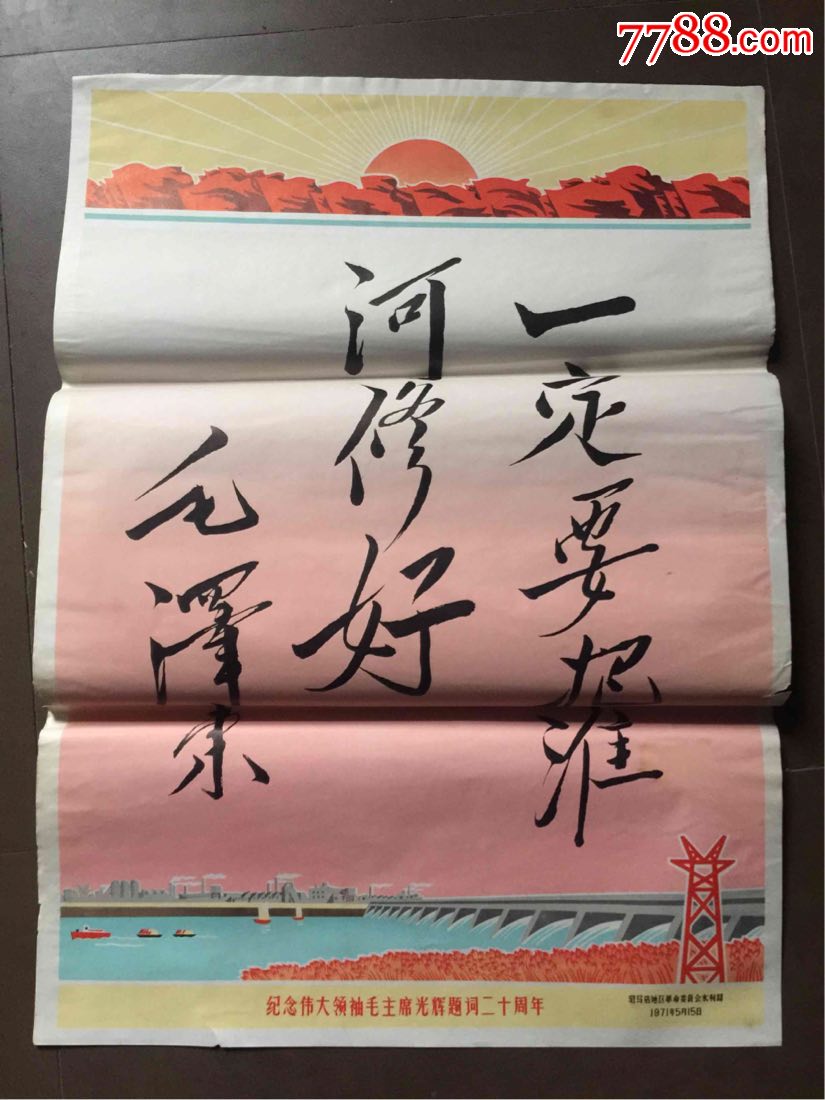 7788.com
一定要把淮
河修好
毛泽东
纪念伟大领袖毛主席光辉题词二十周年
驻马店地区革命委员会水利局
1971年5月15日